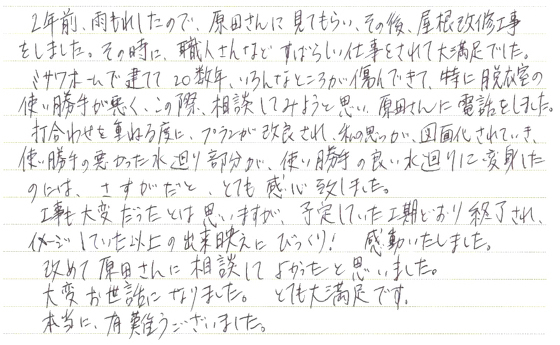 2年前、雨もれしたので、原田さんに見てもらい、その後、屋根改修工事
をしました。その時に、職人さんなど すばらしい仕事をされて大満足でした。
ミサワホームで建てて20数年、いろんなところが傷んできて、特に脱衣室の
使い勝手が悪く、この際、相談してみようと思い、原田さんに電話をしました。
打合わせを重ねる度に、プランが改良され、私の思っが、図面化されていき、
使い勝手の悪かった水廻り部分が、使い勝手の良い水廻りに変身した
のには、さすがだと、とても感心致しました。
工事も大変だったとは思いますが、予定していた工期どおり終了され、
イメージしていた以上の出来映えにびっくり! 感動いたしました。
改めて原田さんに相談してよかったと思いました。
大変お世話になりました。 とても大満足です。
本当に、有難うございました。